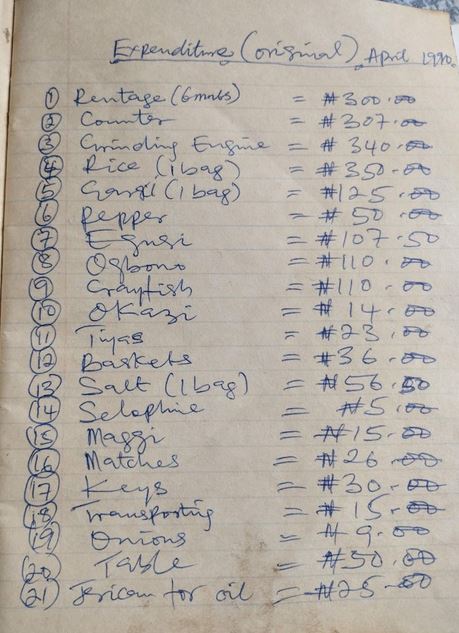 Expenditure (original) April 1990.
① Rentage (6 mnths) = ₦300.00
② Counter = ₦307.00
③ Grinding Engine = ₦340.00
④ Rice (1 bag) = ₦350.00
⑤ Gargi (1 bag) = ₦125.00
⑥ Pepper = ₦50.00
⑦ Egusi = ₦107.50
⑧ Ogbono = ₦110.00
⑨ Crayfish = ₦110.00
⑩ Okazi = ₦14.00
⑪ = ₦23.00
⑫ Baskets = ₦36.00
⑬ Salt (1 bag) = ₦56.50
⑭ Selophine = ₦5.00
⑮ Maggi = ₦15.00
⑯ Matches = ₦26.00
⑰ Keys = ₦30.00
⑱ Transporting = ₦15.00
⑲ Onions = ₦9.00
⑳ Table = ₦50.00
㉑ Jericam for oil = ₦25.00